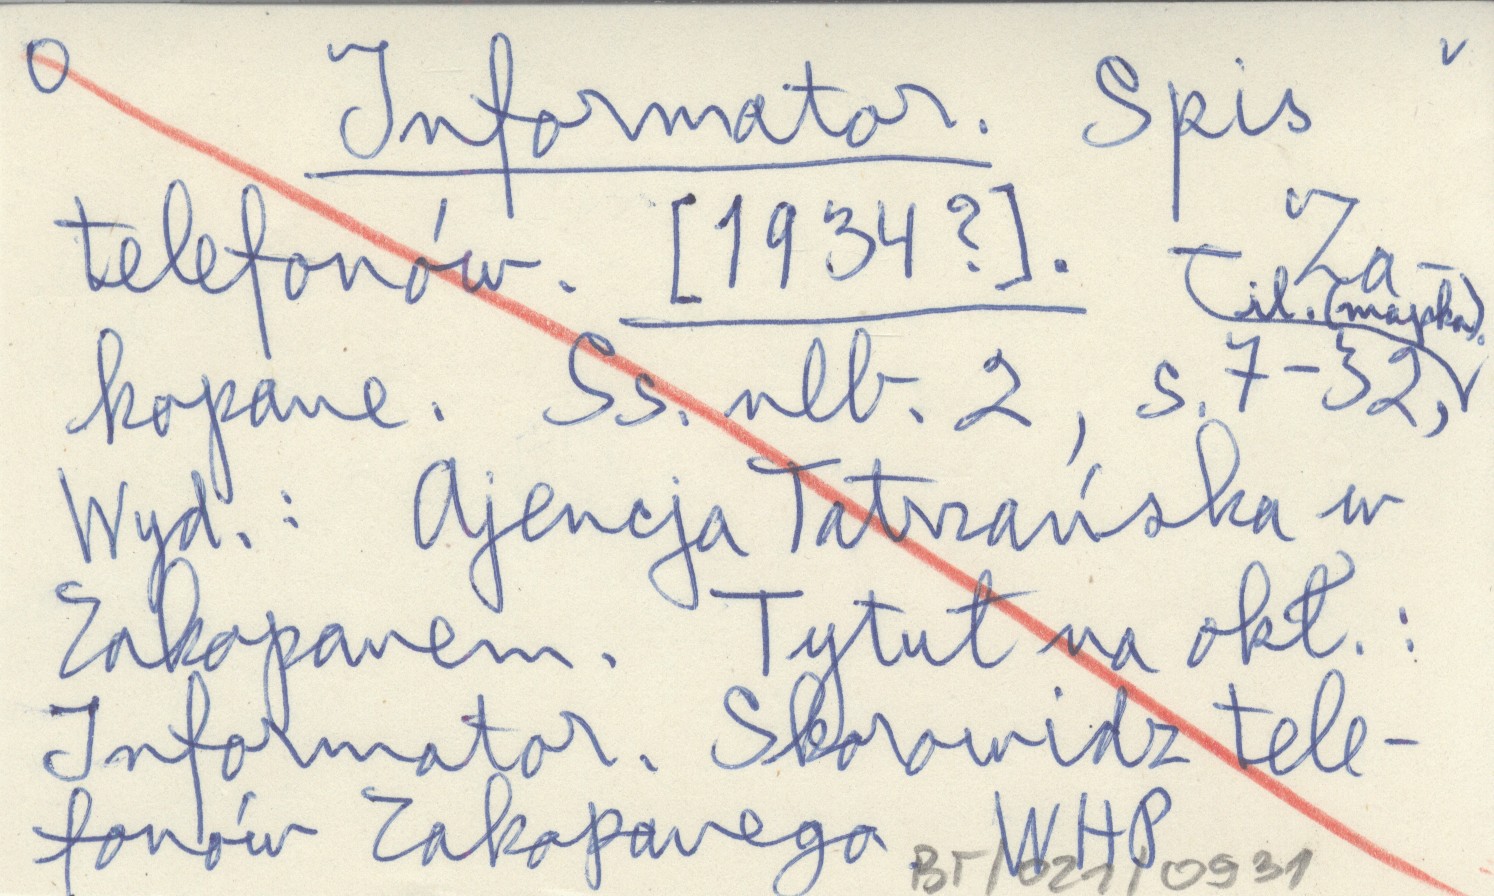 O Informator. Spis v
telefonów. [1934?]. Za-
il. (mapka).
kopane. Ss. nlb. 2, s. 7-32,
Wyd.: Ajencja Tatrzańska w
Zakopanem. Tytuł na okł.:
Informator. Skorowidz tele-
fonów Zakopanego WHP
BT/021/0931